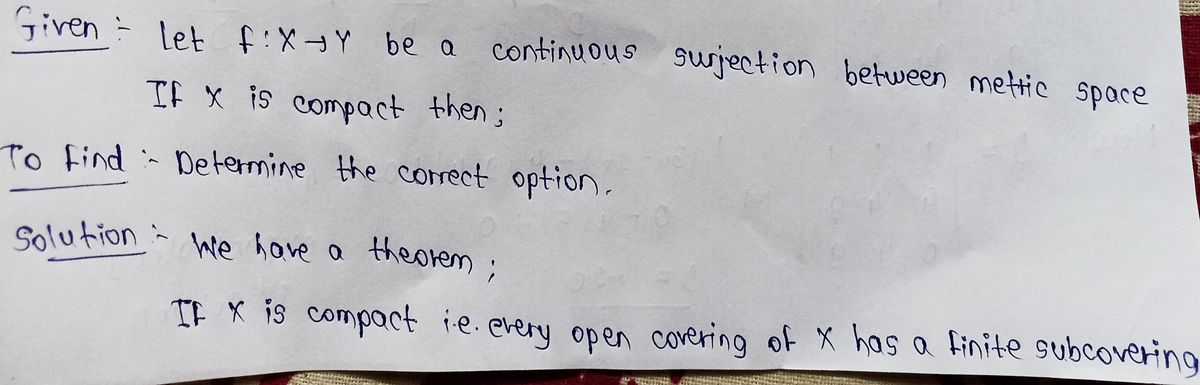 Given :- Let f : X → Y be a continuous surjection between metric space
If X is compact then ;
To find :- Determine the correct option.
Solution :- We have a theorem ;
If X is compact i.e. every open covering of X has a finite subcovering